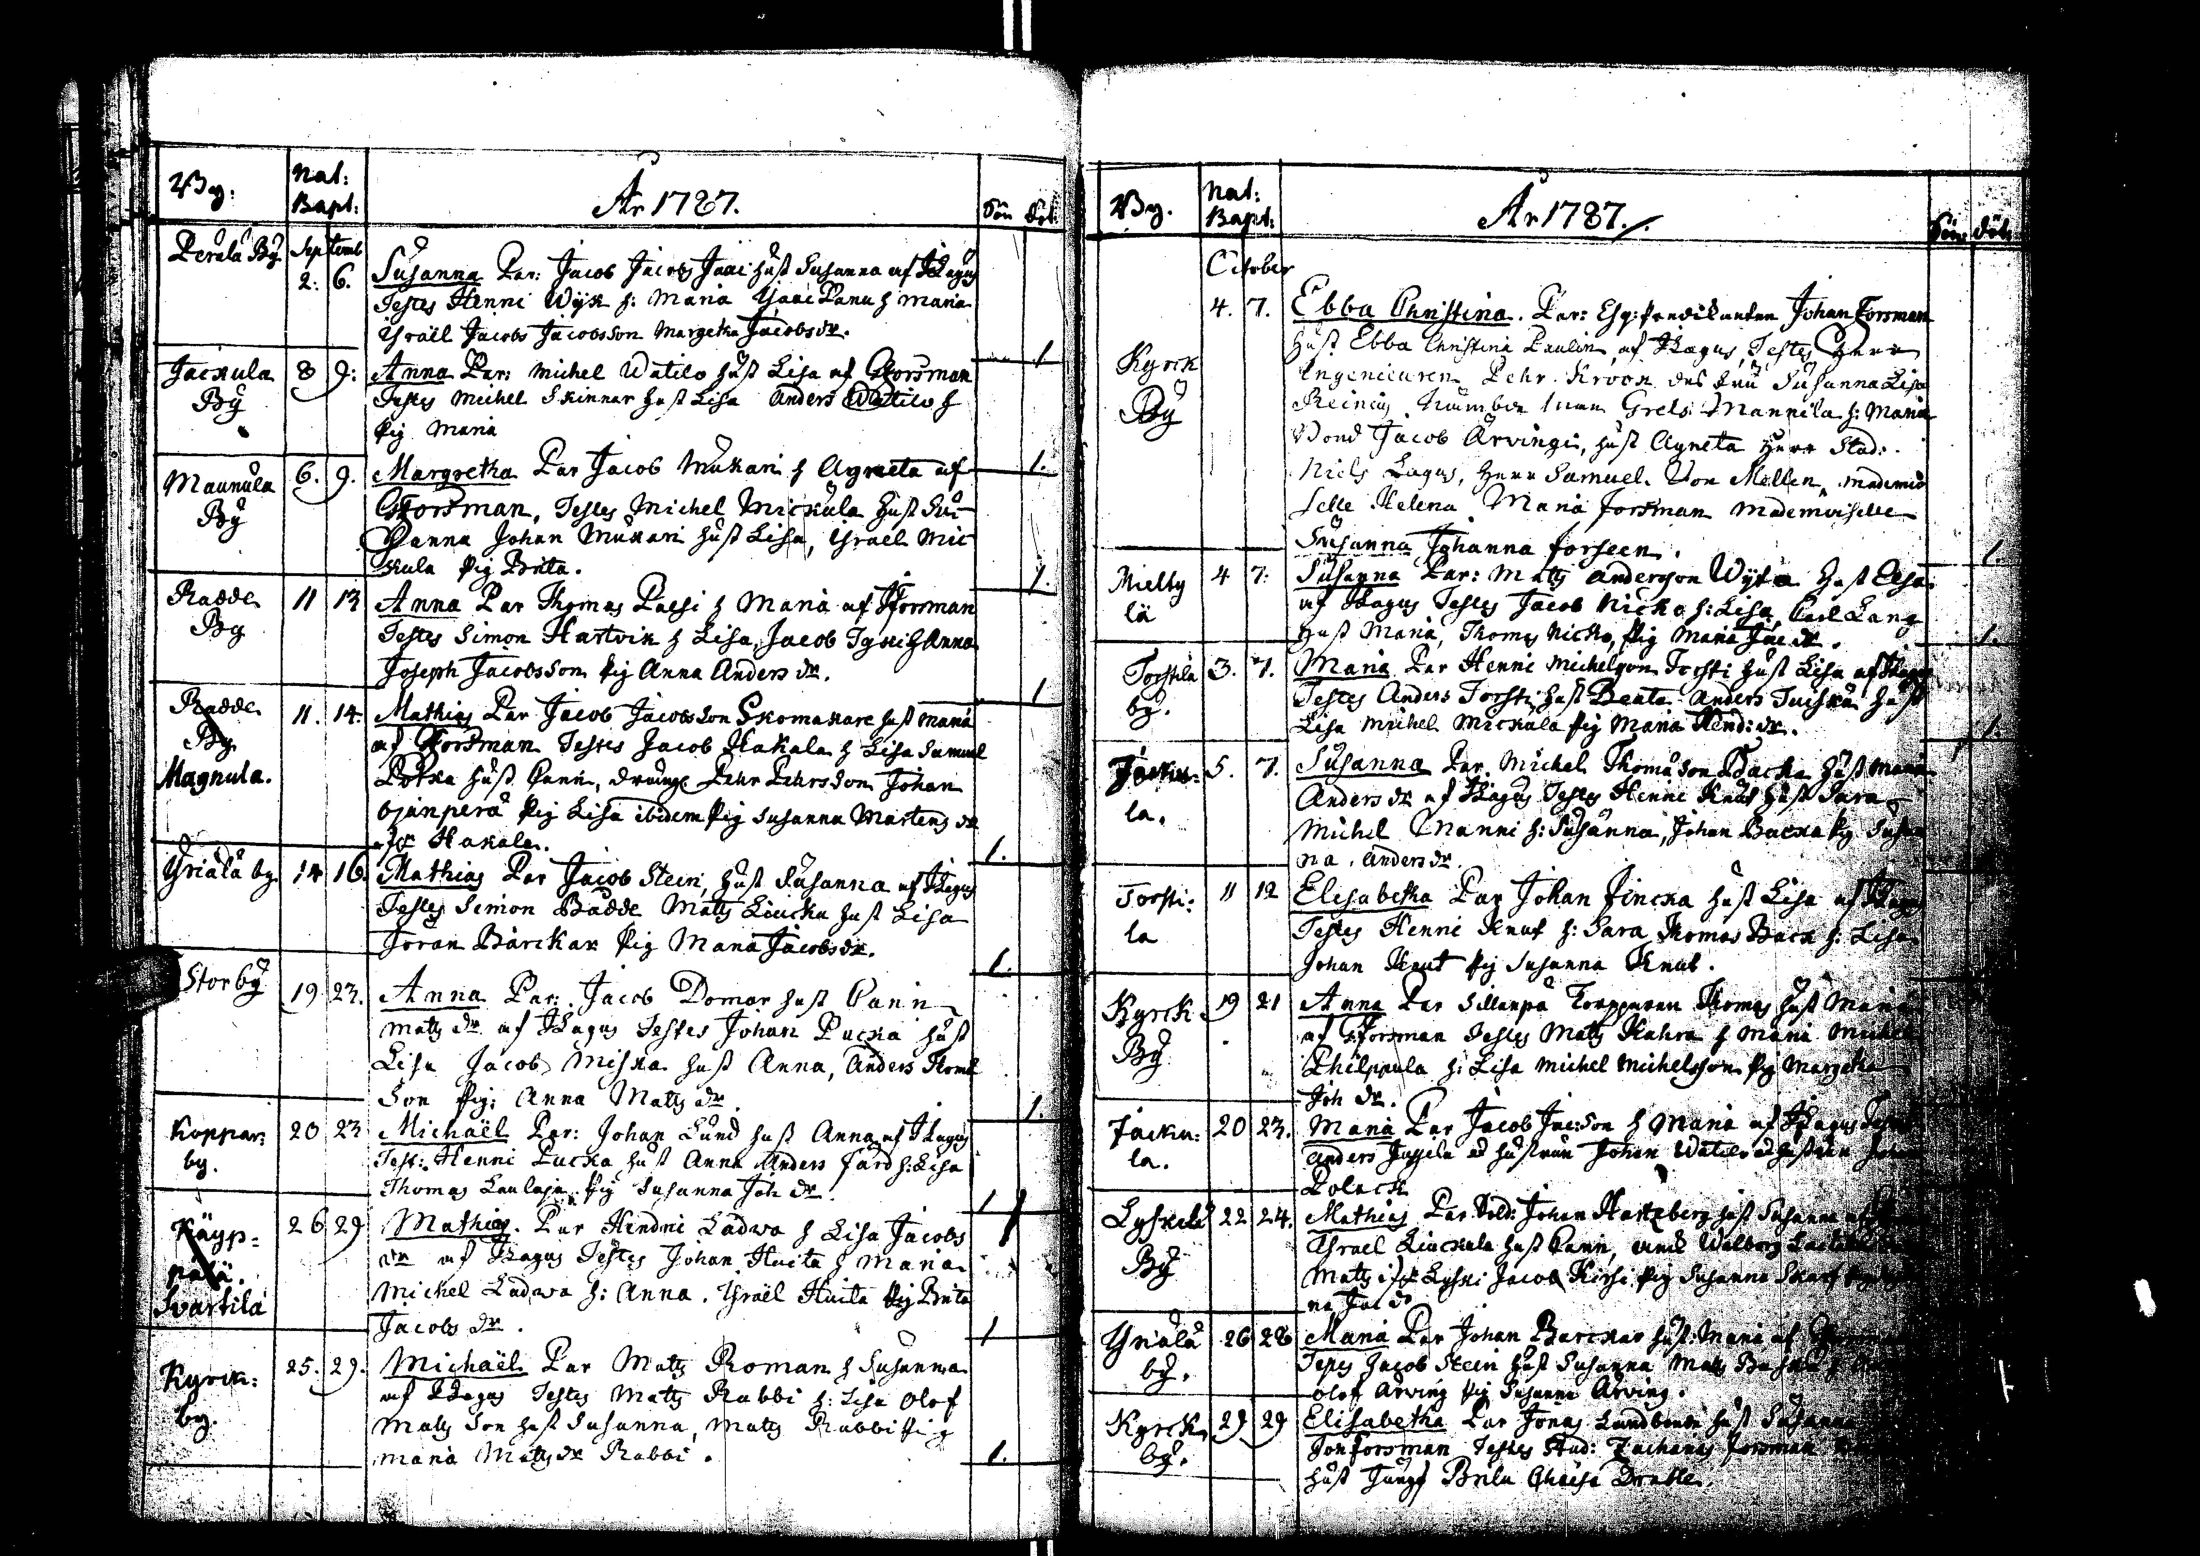 By:
Nat:
Bapt:
År 1787.
Sön
Döt:
Perälä By
Septemb
2. 6.
Susanna Par: Jacob Jacobs Jaaci hust Susanna af JLagus
Testes Henni Wÿk h: Maria h Maria
Israël Jacobs Jacobsson Margetha Jacobs dr.
1
Jackula
By
8 9:
Anna Par: Michel Watilo hust Lisa af Forsman
Testes Michel Skinnar hust Lisa Anders Watilo h
Pig Maria
1.
Maunula
By
6. 9.
Margretha Par Jacob Mukari h Agneta af
Forsman, Testes Michel Mickula hust Su-
sanna Johan Mukari hust Lisa, Israel Mic
kula Pig Brita.
1.
Radde
By
11 13
Anna Par Thomas Passi h Maria af Forsman
Testes Simon Hartvik h Lisa, Jacob h Anna
Joseph Jacobsson Pig Anna Anders dr.
1
Radde
By
Magnula.
11. 14.
Mathias Par Jacob Jacobsson Skomakare hust Maria
af Forsman Testes Jacob Hakala h Lisa Samuel
hust Carin, dränge Pehr Pehrsson Johan
Ojanperä Pig Lisa ibidem Pig Susanna Martens dr
Hakala.
1.
Yriälä by.
14 16.
Mathias Par Jacob Stein, hust Susanna af JLagus
Testes Simon Badde Matts Liucku hust Lisa
Jöran Bärckar Pig Maria Jacobs dr.
1.
Storby
19 23.
Anna Par: Jacob Domar hust Carin
Matts dr af JLagus Testes Johan Pucka hust
Lisa Jacob Miska hust Anna, Anders Thoms
Son Pig: Anna Matts dr.
1.
Koppar:
by.
20 23
Michaël Par: Johan Lund hust Anna af JLagus
Test: Henni Pucka hust Anna Anders Färd h: Lisa
Thomas Laulaja Pig Susanna Joh dr.
1
Käyp=
pälä.
Svartila
26 29
Mathias. Par Hindric Ladwa h Lisa Jacobs
dr af JLagus Testes Johan Huita h Maria
Michel Ladwa h: Anna. Israël Huita Pig Brita
Jacobs dr.
1
Kyrck:
by.
25. 29.
Michaël Par Matts Roman h Susanna
af JLagus Testes Matts Rabbi h: Lisa Olof
Matts Son hust Susanna, Matts Rabbi Pig
Maria Matts dr Rabbi.
1.
By.
Nat:
Bapt:
År 1787.
Sön Döt:
October
Kyrck
By
4. 7.
Ebba Christina. Par: Esq: Predikanten Johan Forsman
hust. Ebba Christina Paulin af JLagus, Testes Herr
Ingenieuren Pehr Kröök des Fru Susanna Lisa
Grels Mannila h: Maria
Bond Jacob Ärvingi, hust Agneta Herr Stud:
Niels Lagus, Herr Samuel Von Mellen, Mademoi
selle Helena Maria Forsman Mademoiselle
Susanna Johanna Forseen.
1.
Mielby
lä
4 7:
Susanna Par: Matts Andersson Wÿk hust Lisa
af JLagus Testes Jacob Nicko h: Lisa, Carl Lang
hust Maria, Thomas Nicko, Pig Maria Jac dr.
1.
Torstila
by.
3. 7.
Maria Par Henni Michelsson Torsti hust Lisa af JLagus
Testes Anders Torsti hust Beata Anders hust
Lisa Michel Mickala Pig Maria Hend: dr.
1.
Jacku:
la.
5. 7.
Susanna Par. Michel Thomasson Backa hust Maria
Anders dr af JLagus Testes Henni Knut hust Sara
Michel Manni h: Susanna, Johan Backa Pig Susan
na. Anders dr.
Torsti:
la
11 12
Elisabetha Par Johan Fincka hust Lisa af JLagus
Testes Henni Knut h: Sara Thomas Back h: Lisa
Johan Knut Pig Susanna Knut.
Kyrck
By
19 21
Anna Par Sillanpä Thomas hust Maria
af Forsman Testes Matts Kahra h Maria Michel
Philppula h: Lisa Michel Michelsson Pig Margetha
Joh dr.
Jacku:
la.
20 23.
Maria Par Jacob Jac:son h Maria af JLagus
Anders Jussila hustrun Johan Watilo hustrun
Polack
By
22 24.
Mathias Par Sold: Johan Hartzberg hust Susanna
Israel Liuckula hust Carin, Walborg
Matts Jacob Kirsi Pig Susanna
na Jac d
Yriälä
by.
26 28
Maria Par Johan Barckar hust: Maria af
Testes Jacob Stein hust Susanna Matts
Olof Arving Pig Susanna Arving.
Kyrck
by.
29 29
Elisabetha Par Jonas Lundbom hust Susanna
Joh Forsman Testes Stud: Zacharias Forsman
hust Jungf Brita